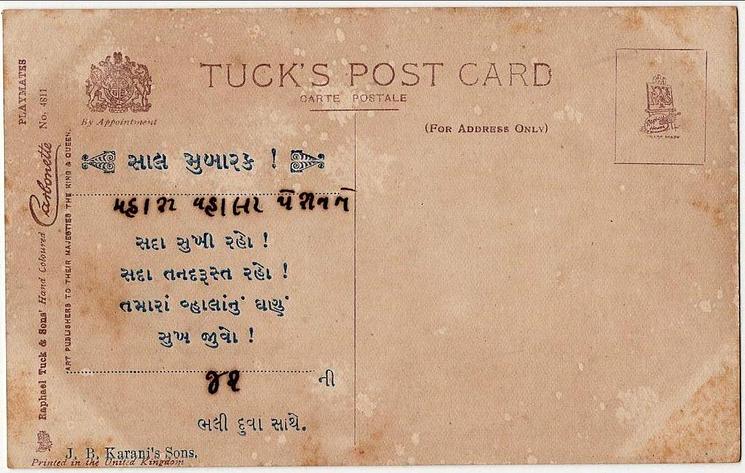 TUCK'S POST CARD
CARTE POSTALE
By Appointment
(FOR ADDRESS ONLY)
PLAYMATES
No. 4811
Raphael Tuck & Sons' Hand Coloured Carbonette
ART PUBLISHERS TO THEIR MAJESTIES THE KING & QUEEN.
સાલ મુબારક !
મહારા વ્હાલા
સદા સુખી રહો !
સદા તનદરૂસ્ત રહો !
તમારાં વ્હાલાંનું ઘણું
સુખ જુવો !
ની
ભલી દુવા સાથે.
J. B. Karani's Sons,
Printed in the United Kingdom